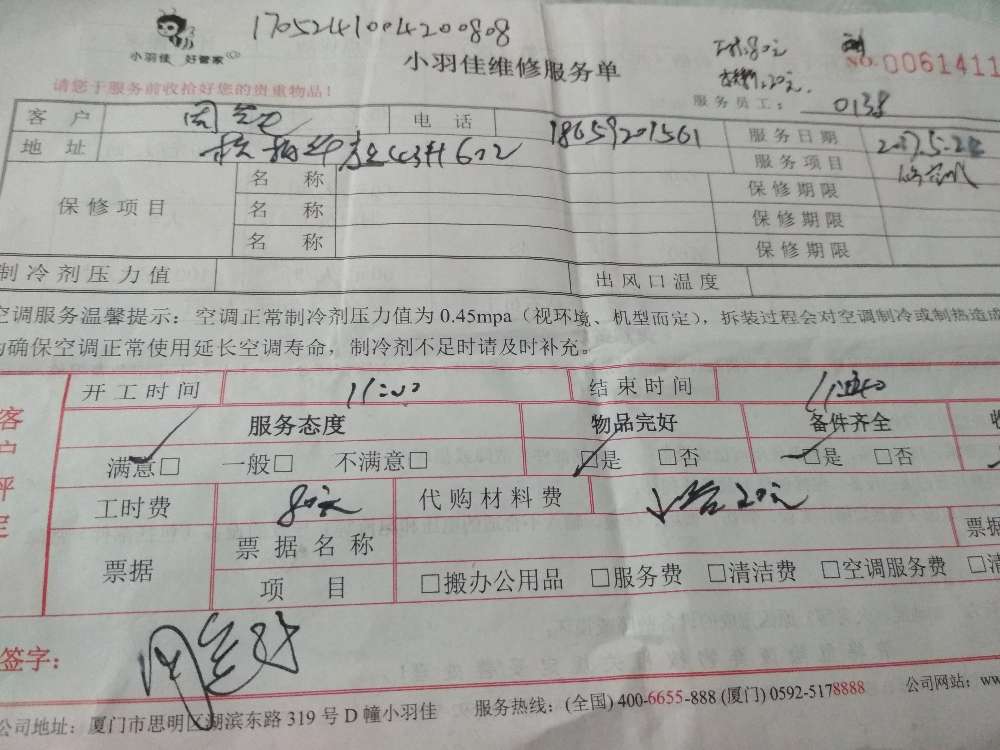 1705241004200808
小羽佳 好管家
小羽佳维修服务单
80元
20元
NO. 0061411
请您于服务前收拾好您的贵重物品！
服务员工： 0138
客 户 周 电 话 18659201561 服务日期 2017.5.2
地 址 602 服务项目
保修项目
名 称 保修期限
名 称 保修期限
名 称 保修期限
制冷剂压力值 出风口温度
空调服务温馨提示：空调正常制冷剂压力值为 0.45mpa（视环境、机型而定），拆装过程会对空调制冷或制热造成
为确保空调正常使用延长空调寿命，制冷剂不足时请及时补充。
客户评定
开工时间 11:00 结束时间 11:40
服务态度 物品完好 备件齐全
满意□ 一般□ 不满意□ □是 □否 □是 □否
工时费 80元 代购材料费 20元
票据 票据名称 票据
项 目 □搬办公用品 □服务费 □清洁费 □空调服务费 □清
签字： 周
公司地址：厦门市思明区湖滨东路 319 号 D 幢小羽佳 服务热线：(全国) 400-6655-888 (厦门) 0592-5178888 公司网站：ww